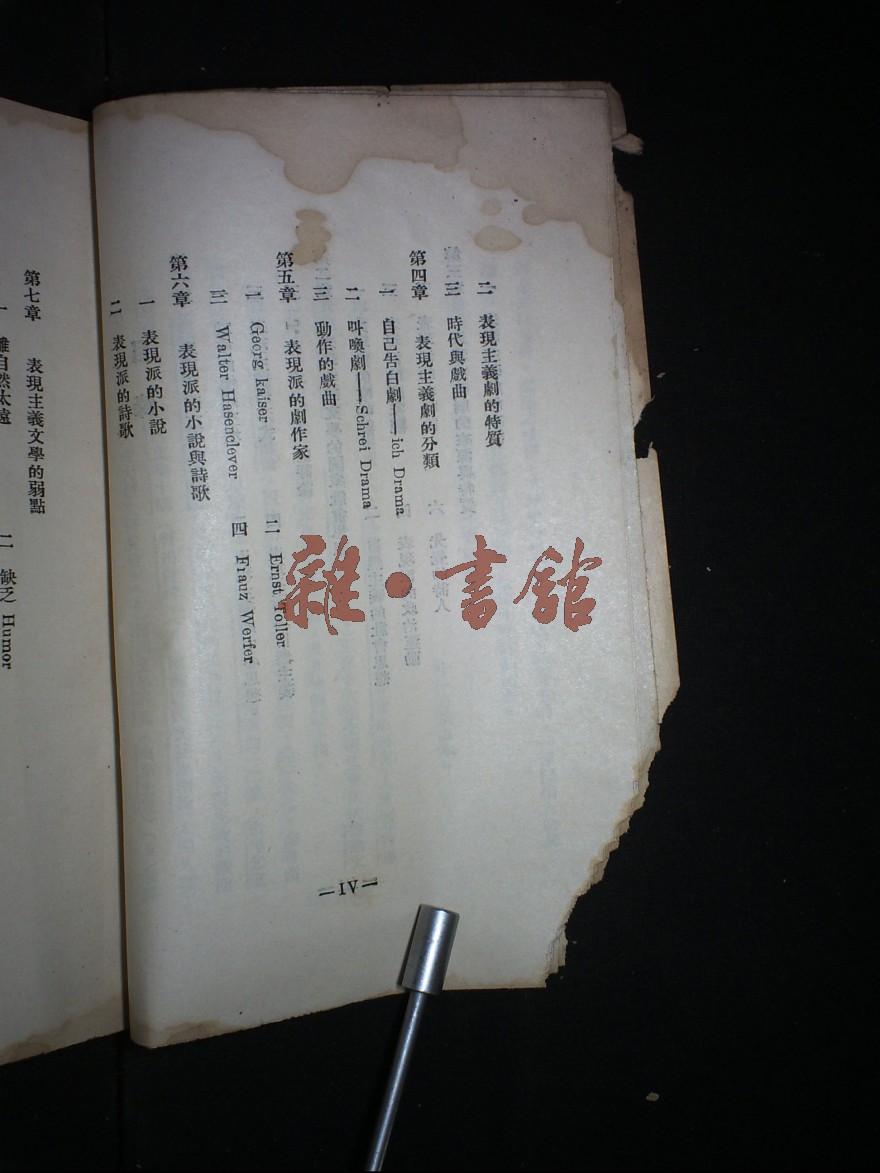 二 表現主義劇的特質
三 時代與戲曲
第四章 表現主義劇的分類
一 自己告白劇——ich Drama
二 叫喚劇——Schrei Drama
三 動作的戲曲
第五章 表現派的劇作家
一 Georg kaiser 二 Ernst Toller
三 Walter Hasenclever 四 Frauz Werfer
第六章 表現派的小說與詩歌
一 表現派的小說
二 表現派的詩歌
—IV—
第七章 表現主義文學的弱點
一 離自然太遠 二 缺乏 Humor
雜·書館